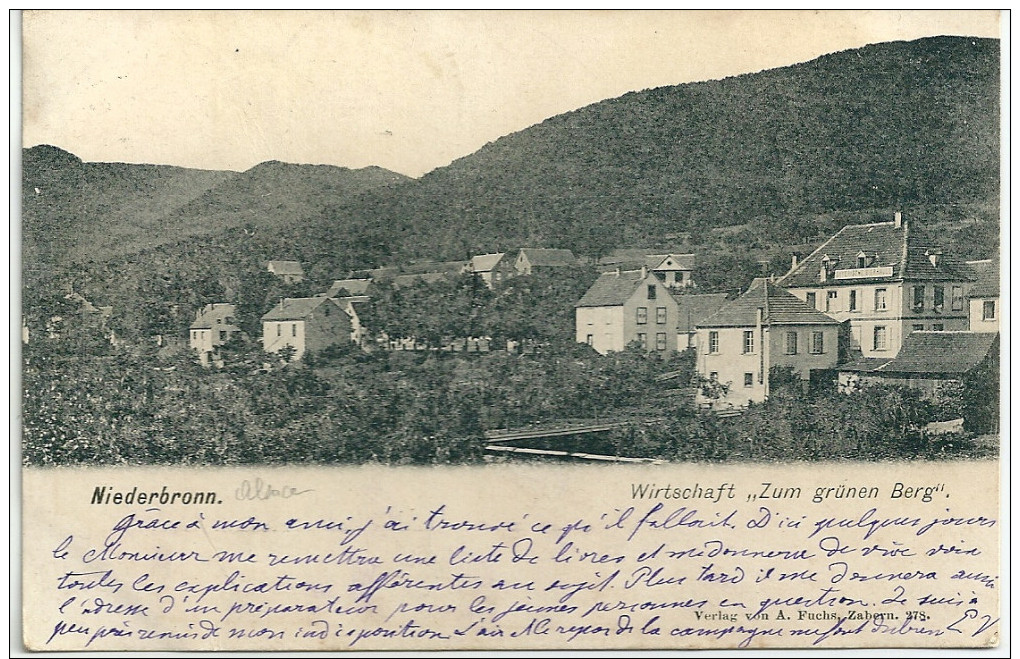 Niederbronn. Alsace
Wirtschaft „Zum grünen Berg“.
Grâce à mon ami, j'ai trouvé ce qu'il fallait. D'ici quelques jours
le Monsieur me remettra une liste de livres et me donnera de vive voix
toutes les explications afférentes au sujet. Plus tard il me donnera aussi
l'adresse d'un préparateur pour les jeunes personnes en question. Je suis à
Verlag von A. Fuchs, Zabern. 278.
peu près remis de mon indisposition L'air et le repos de la campagne me font du bien